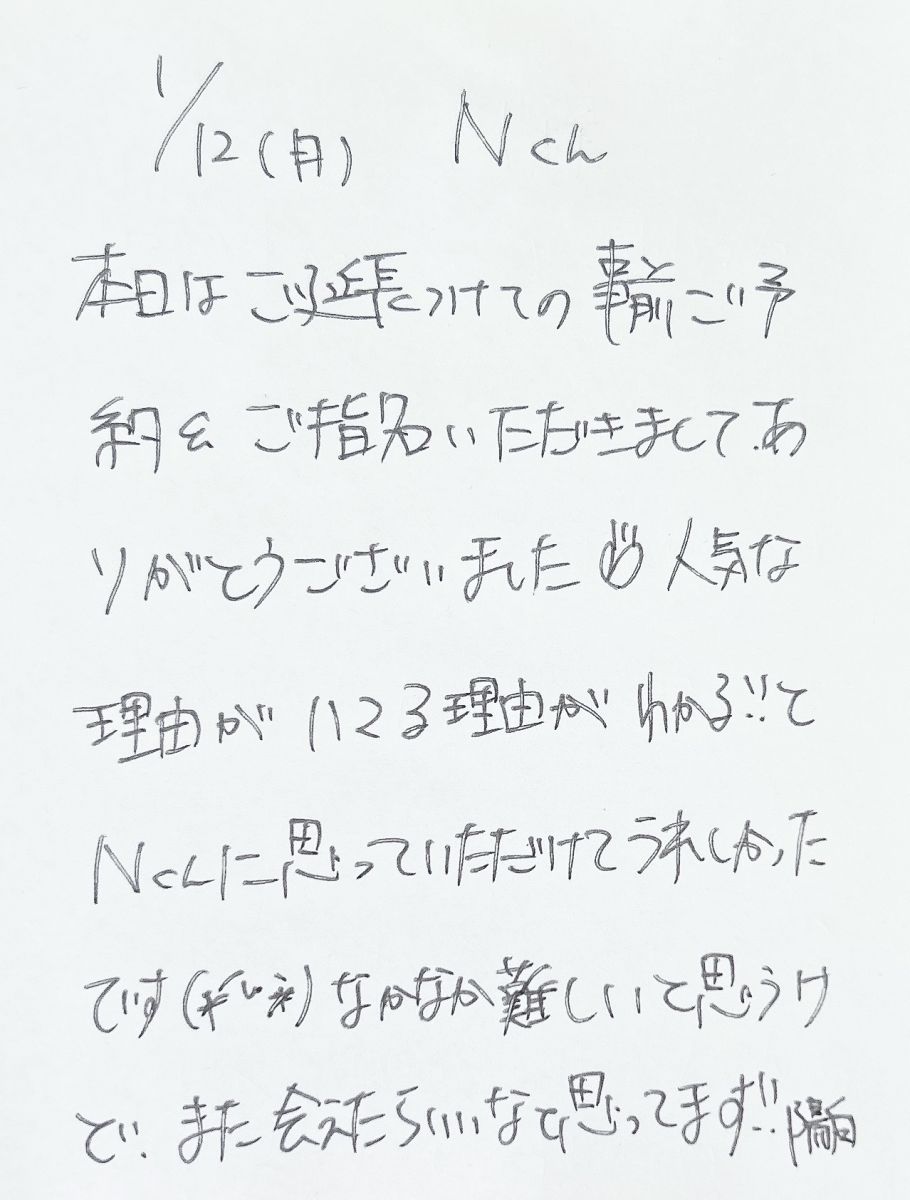 1/12(月) Nくん
本日はご延長つけての事前ご予
約&ご指名いただきまして、あ
りがとうございました♡人気な
理由がいてる理由がわかる!!と
Nくんに思っていただけてうれしかった
です(*ˊ˘ˋ*)なかなか難しいと思うけ
ど、また会えたらいいなと思ってます!!